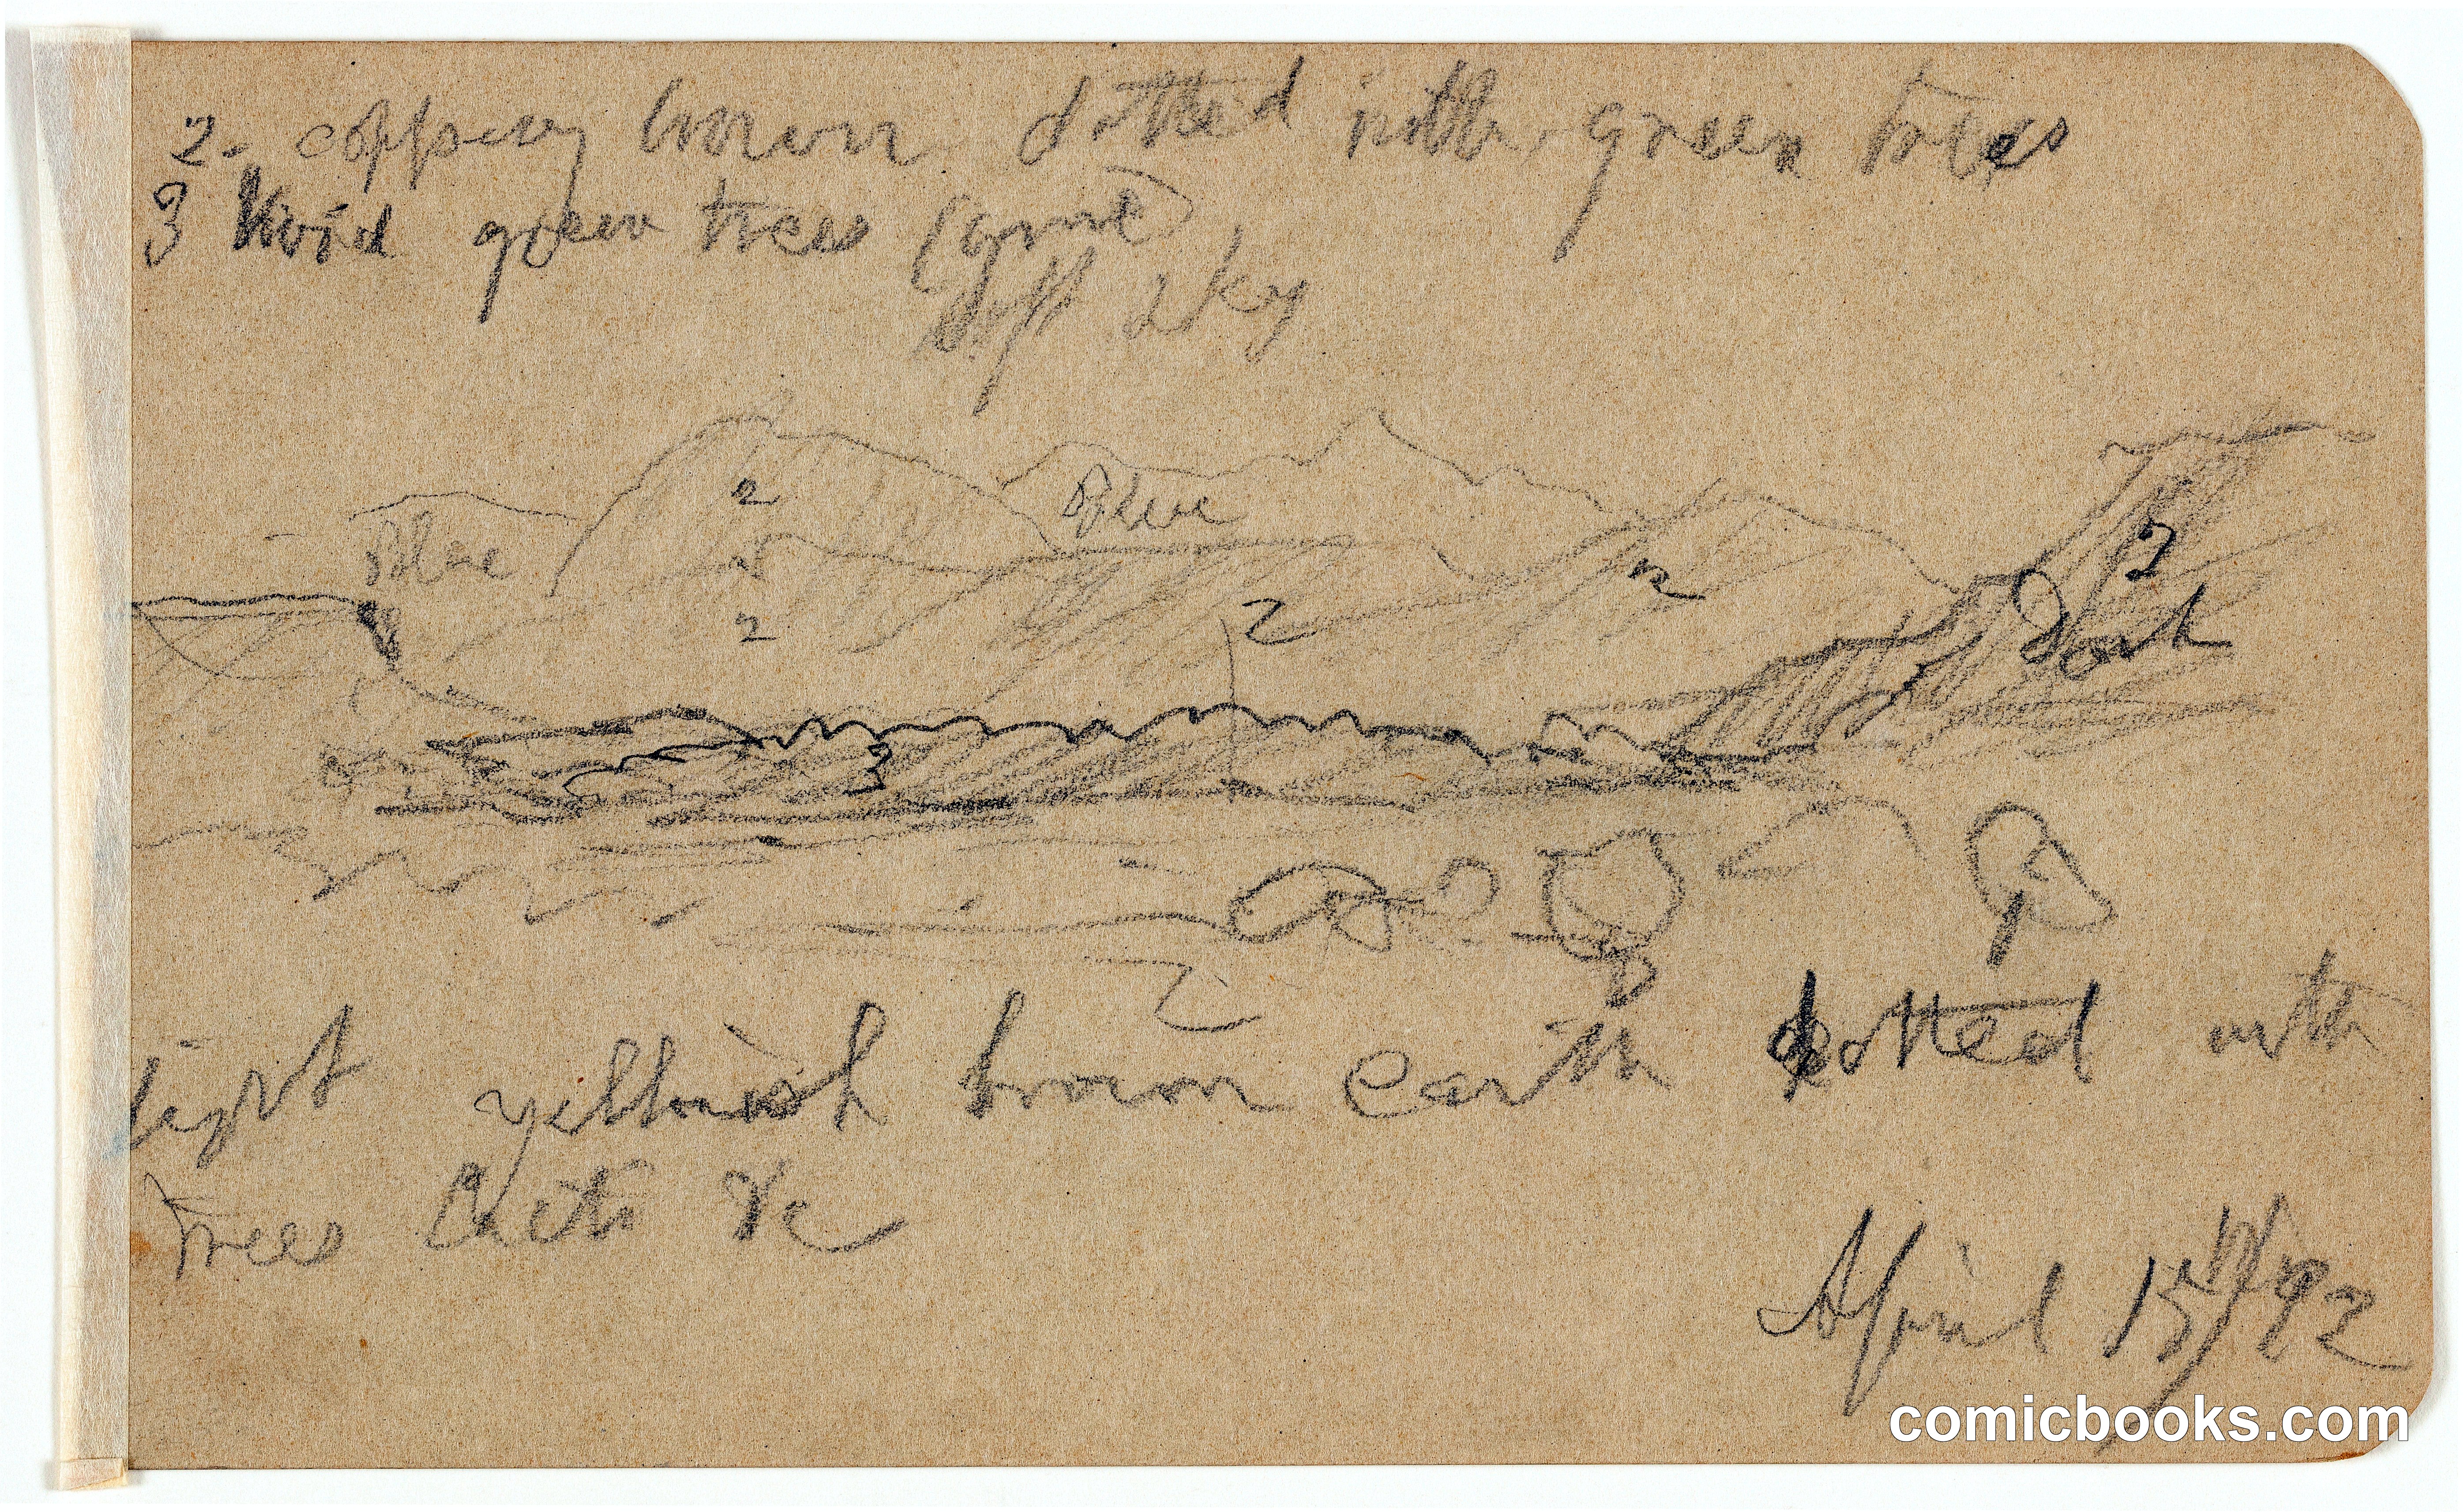 2. coppery brown dotted with green trees
3 Vivid green trees (some)
soft sky
2
Blue
Blue
2
2
2
2
2
Dark
3
2
light yellowish brown earth dotted with
Trees Cacti &c
April 15th/92
comicbooks.com